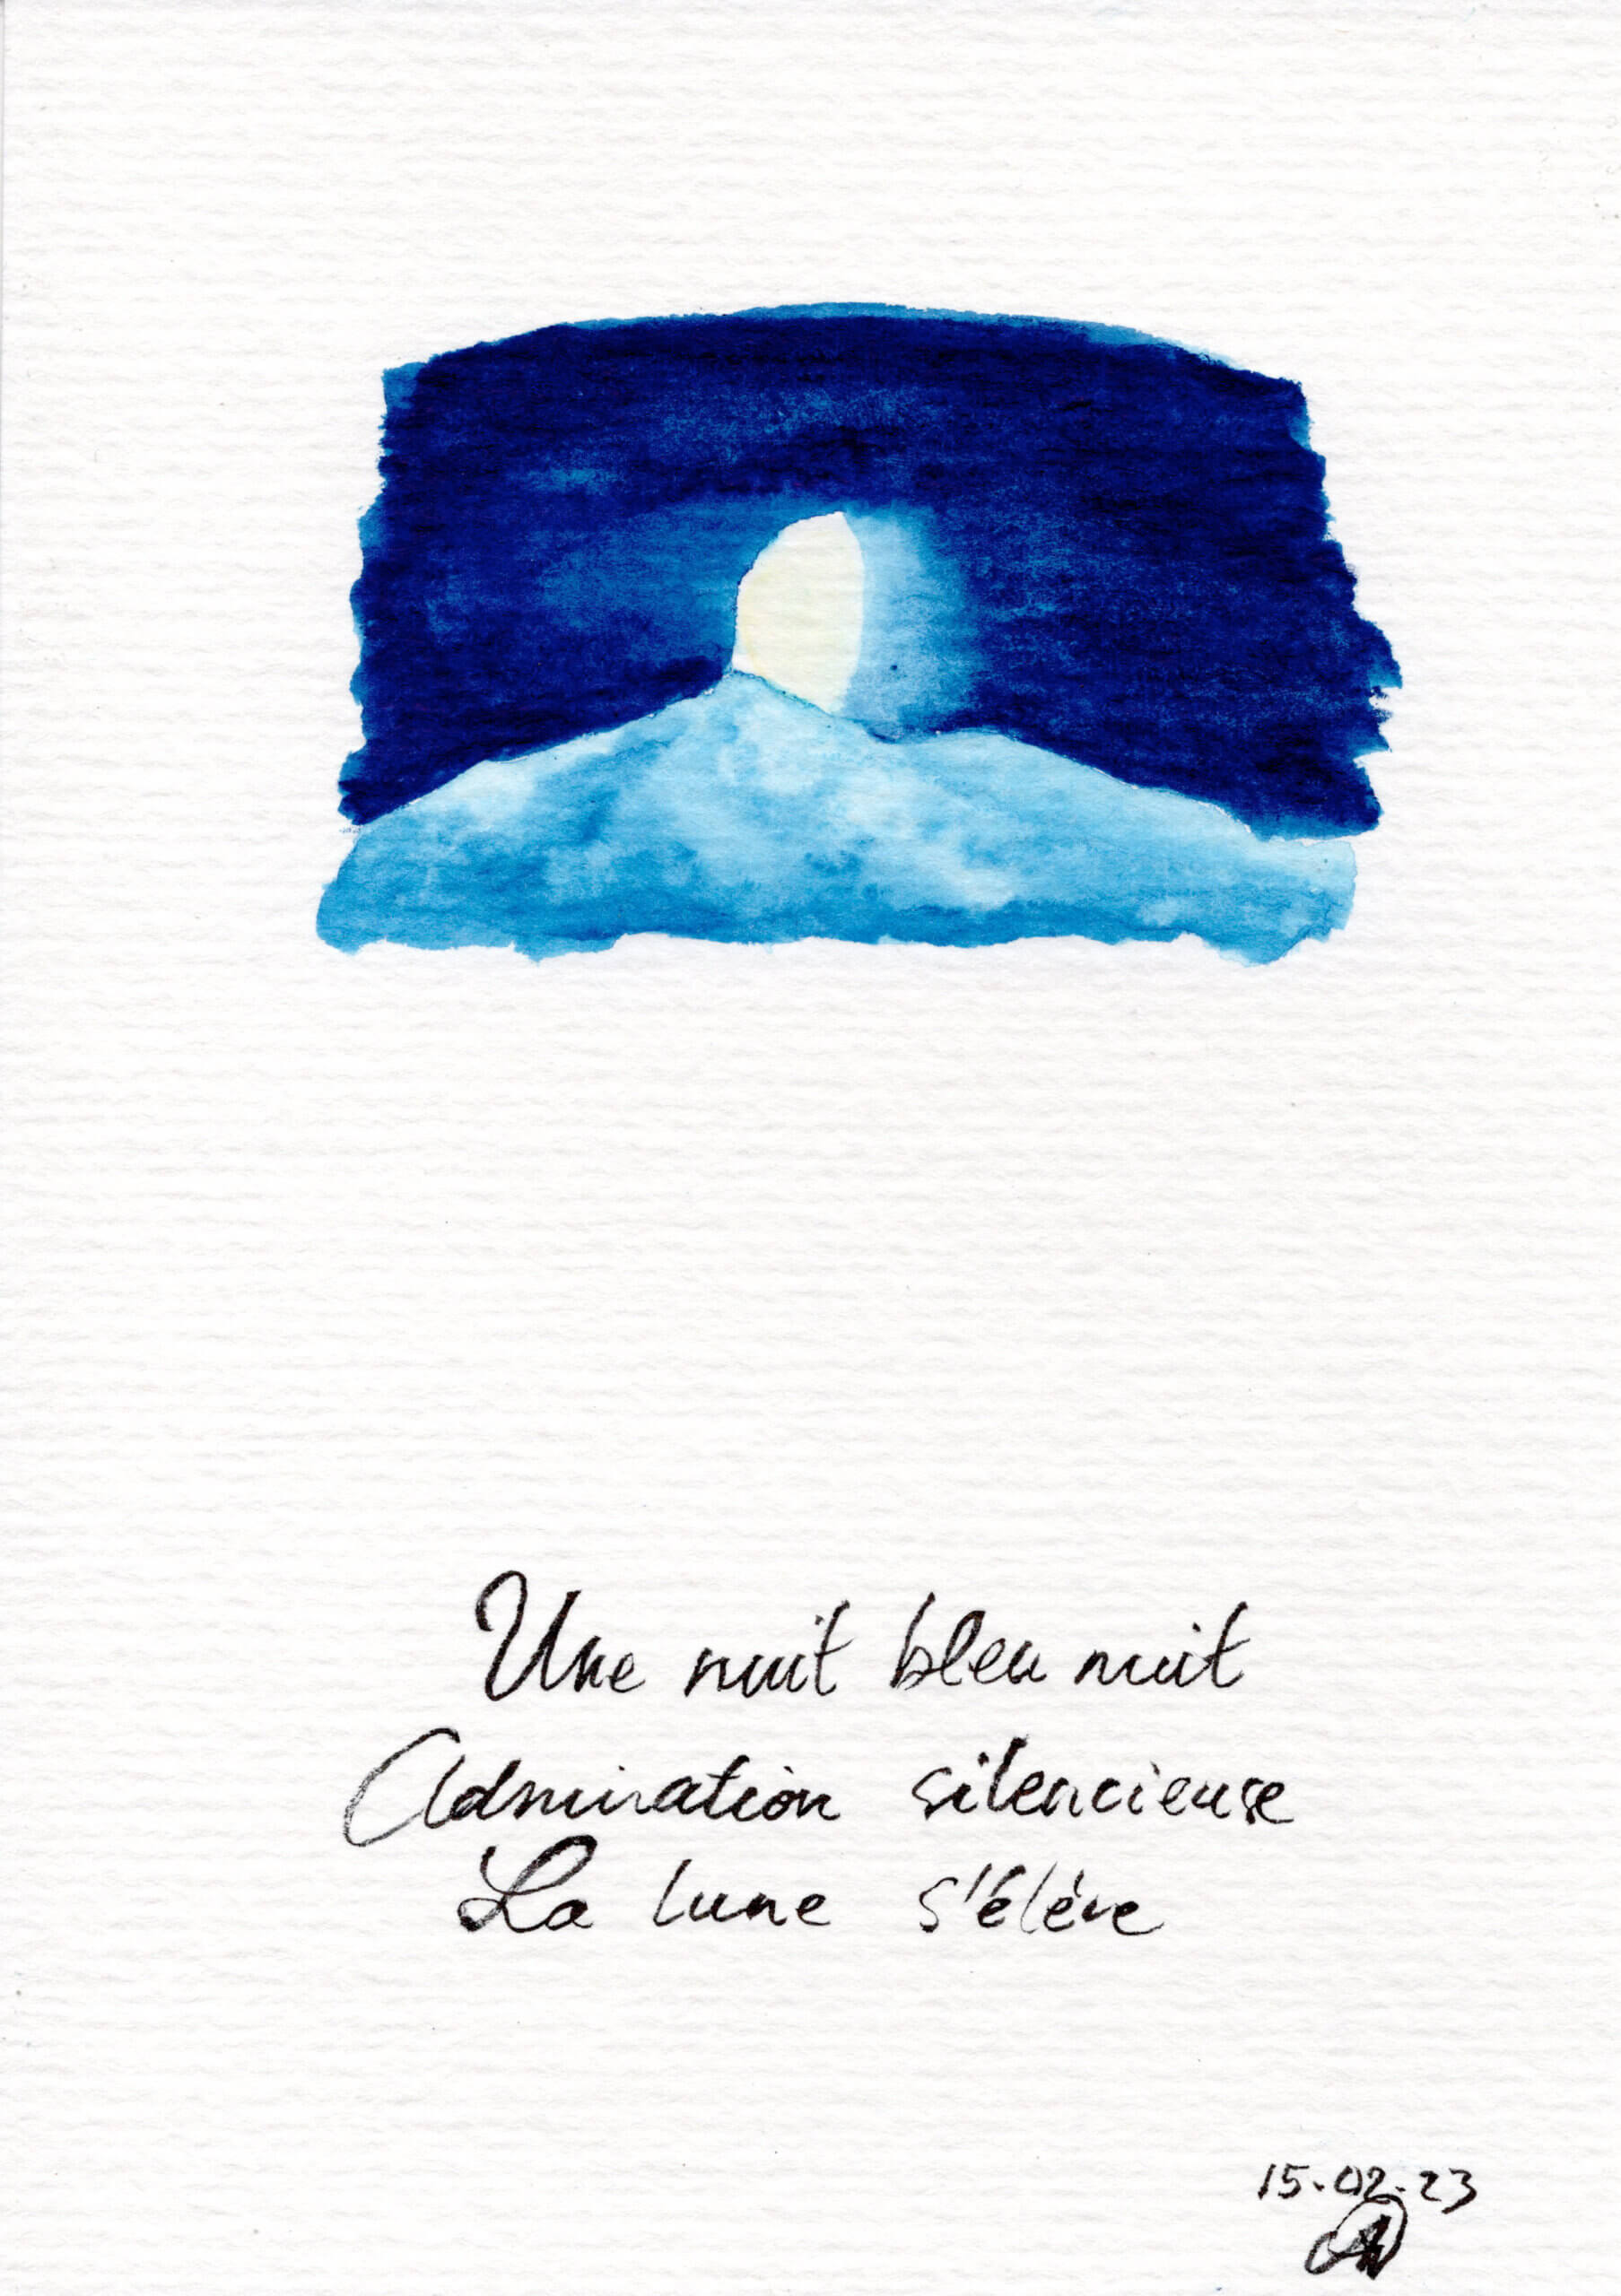 Une nuit bleu nuit
Admiration silencieuse
La lune s'élève
15.02.23